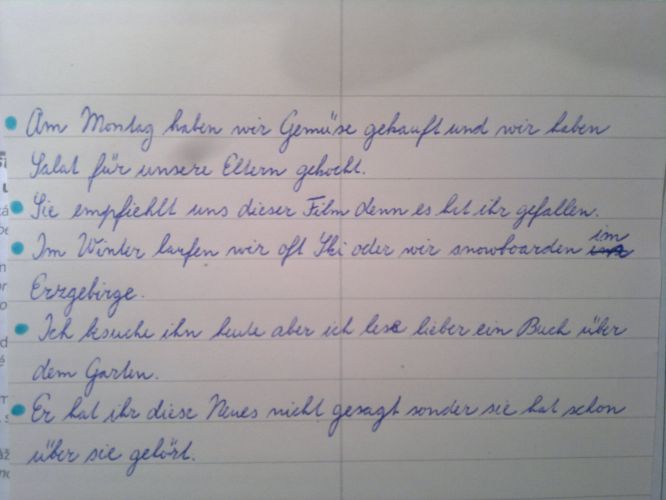 Am Montag haben wir Gemüse gekauft und wir haben
Salat für unsere Eltern gekocht.
Sie empfiehlt uns dieser Film denn es hat ihr gefallen.
Im Winter laufen wir oft Ski oder wir snowboarden im
Erzgebirge.
Ich besuche ihn heute aber ich lese lieber ein Buch über
dem Garten.
Er hat ihr diese Neues nicht gesagt sonder sie hat schon
über sie gehört.